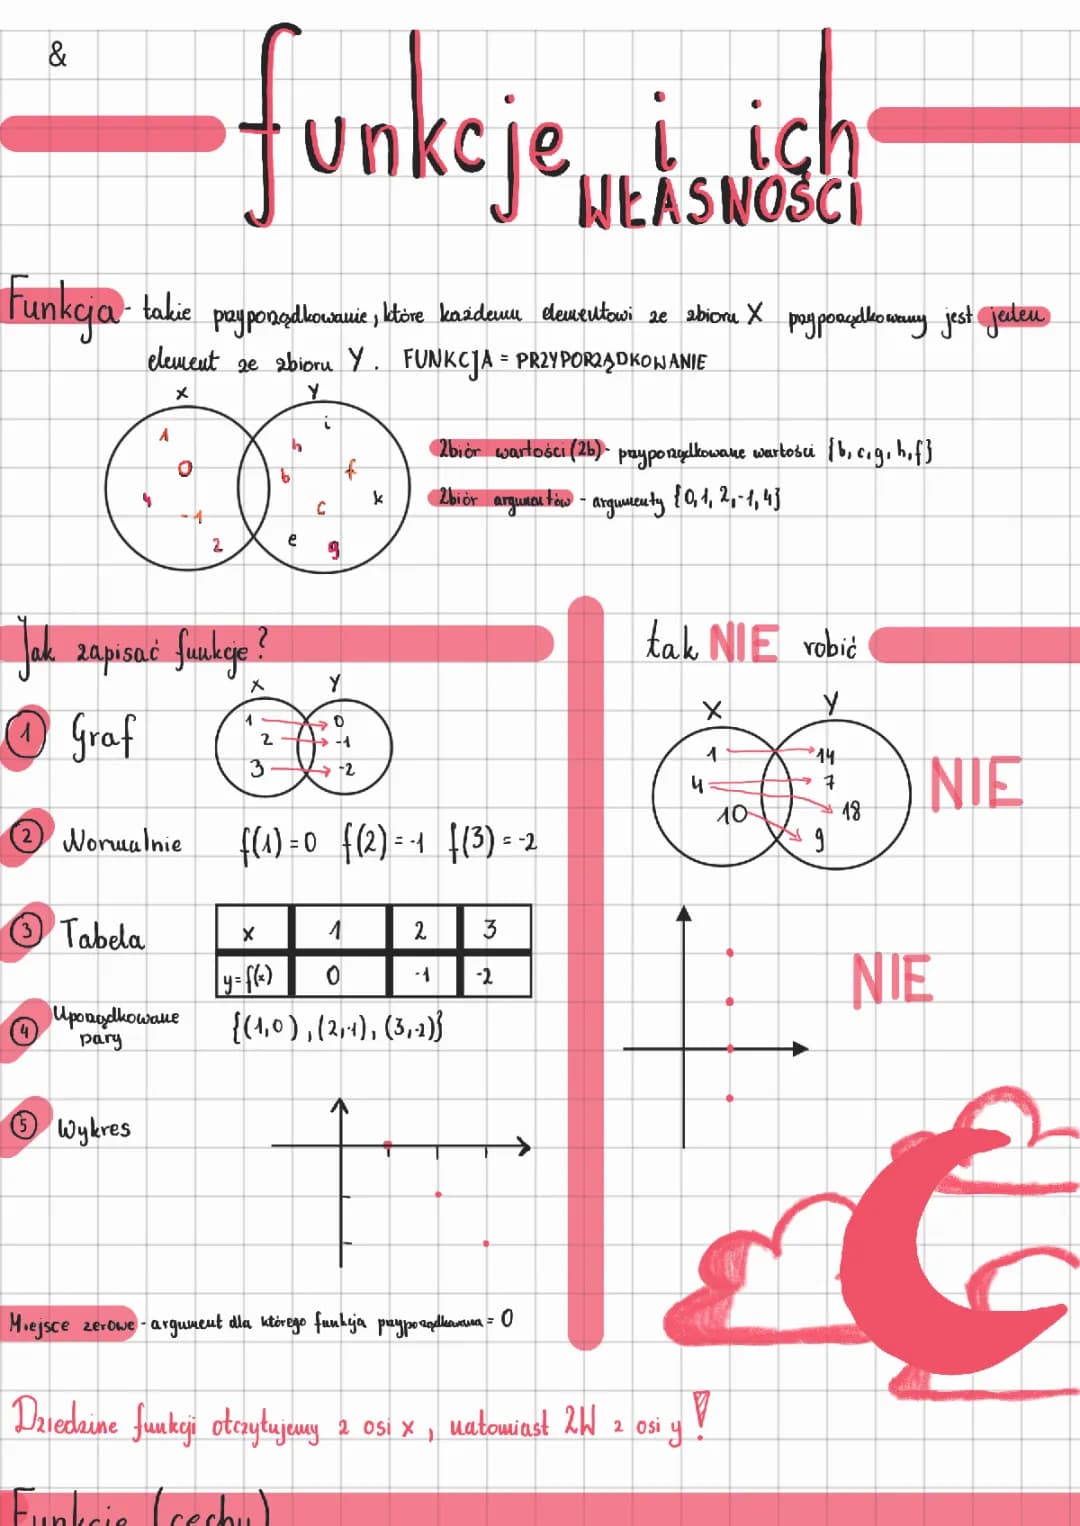 &
funkcje i ich
WŁASNOŚCI
Funkcja - takie przyporządkowanie, które każdemu elementowi ze zbioru X przyporządkowany jest jeden
element ze zbioru Y. FUNKCJA = PRZYPORZĄDKOWANIE
X Y
1 0 4 -1 2
i h b f c k e g
Zbiór wartości (Zb) - przyporządkowane wartości {b, c, g, h, f}
Zbiór argumentów - argumenty {0, 1, 2, -1, 4}
Jak zapisać funkcje?
X Y
1 Graf
1 0
2 -1
3 -2
2 Normalnie f(1) = 0 f(2) = -1 f(3) = -2
3 Tabela
x 1 2 3
y = f(x) 0 -1 -2
4 Uporządkowane
pary
{(1,0), (2,-1), (3,-2)}
5 Wykres
Miejsce zerowe - argument dla którego funkcja = 0
tak NIE robić
X Y
1 14
4 7
10 18
9
NIE
NIE
Dziedzine funkcji otczytujemy z osi x, natomiast ZW z osi y!
Funkcje (cechy)